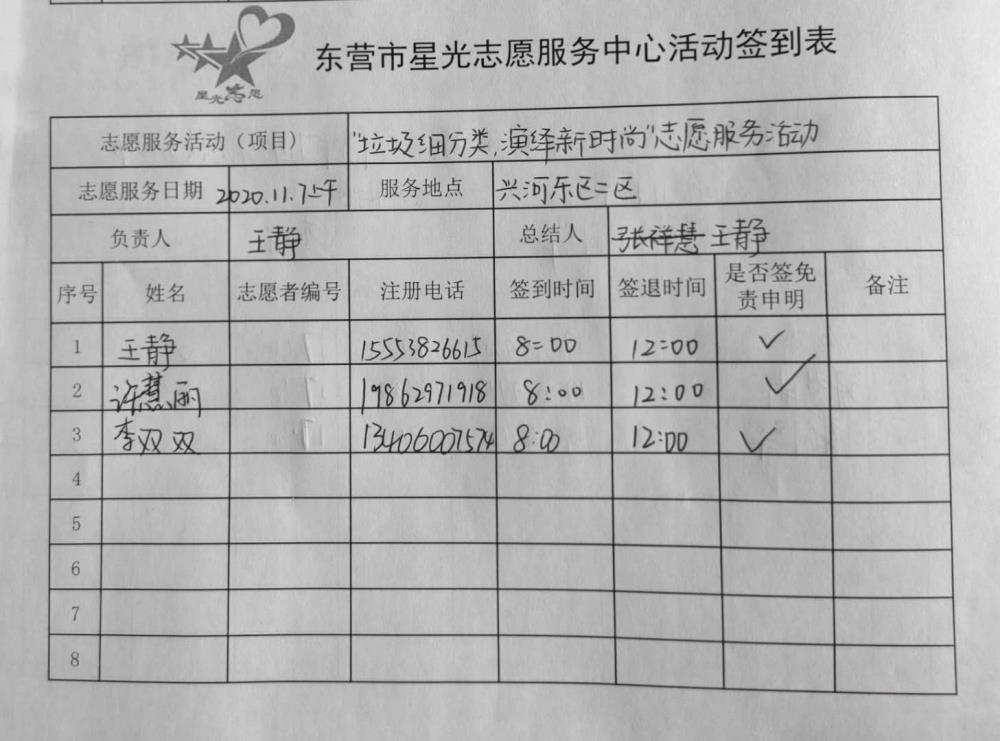 星光志愿
东营市星光志愿服务中心活动签到表
志愿服务活动（项目） "垃圾细分类,演绎新时尚"志愿服务活动
志愿服务日期 2020.11.7上午 服务地点 兴河东区二区
负责人 王静 总结人 张祥慧 王静
序号 姓名 志愿者编号 注册电话 签到时间 签退时间 是否签免责申明 备注
1 王静 15553826615 8:00 12:00 ✓
2 许慧丽 19862971918 8:00 12:00 ✓
3 李双双 13406007574 8:00 12:00 ✓
4
5
6
7
8